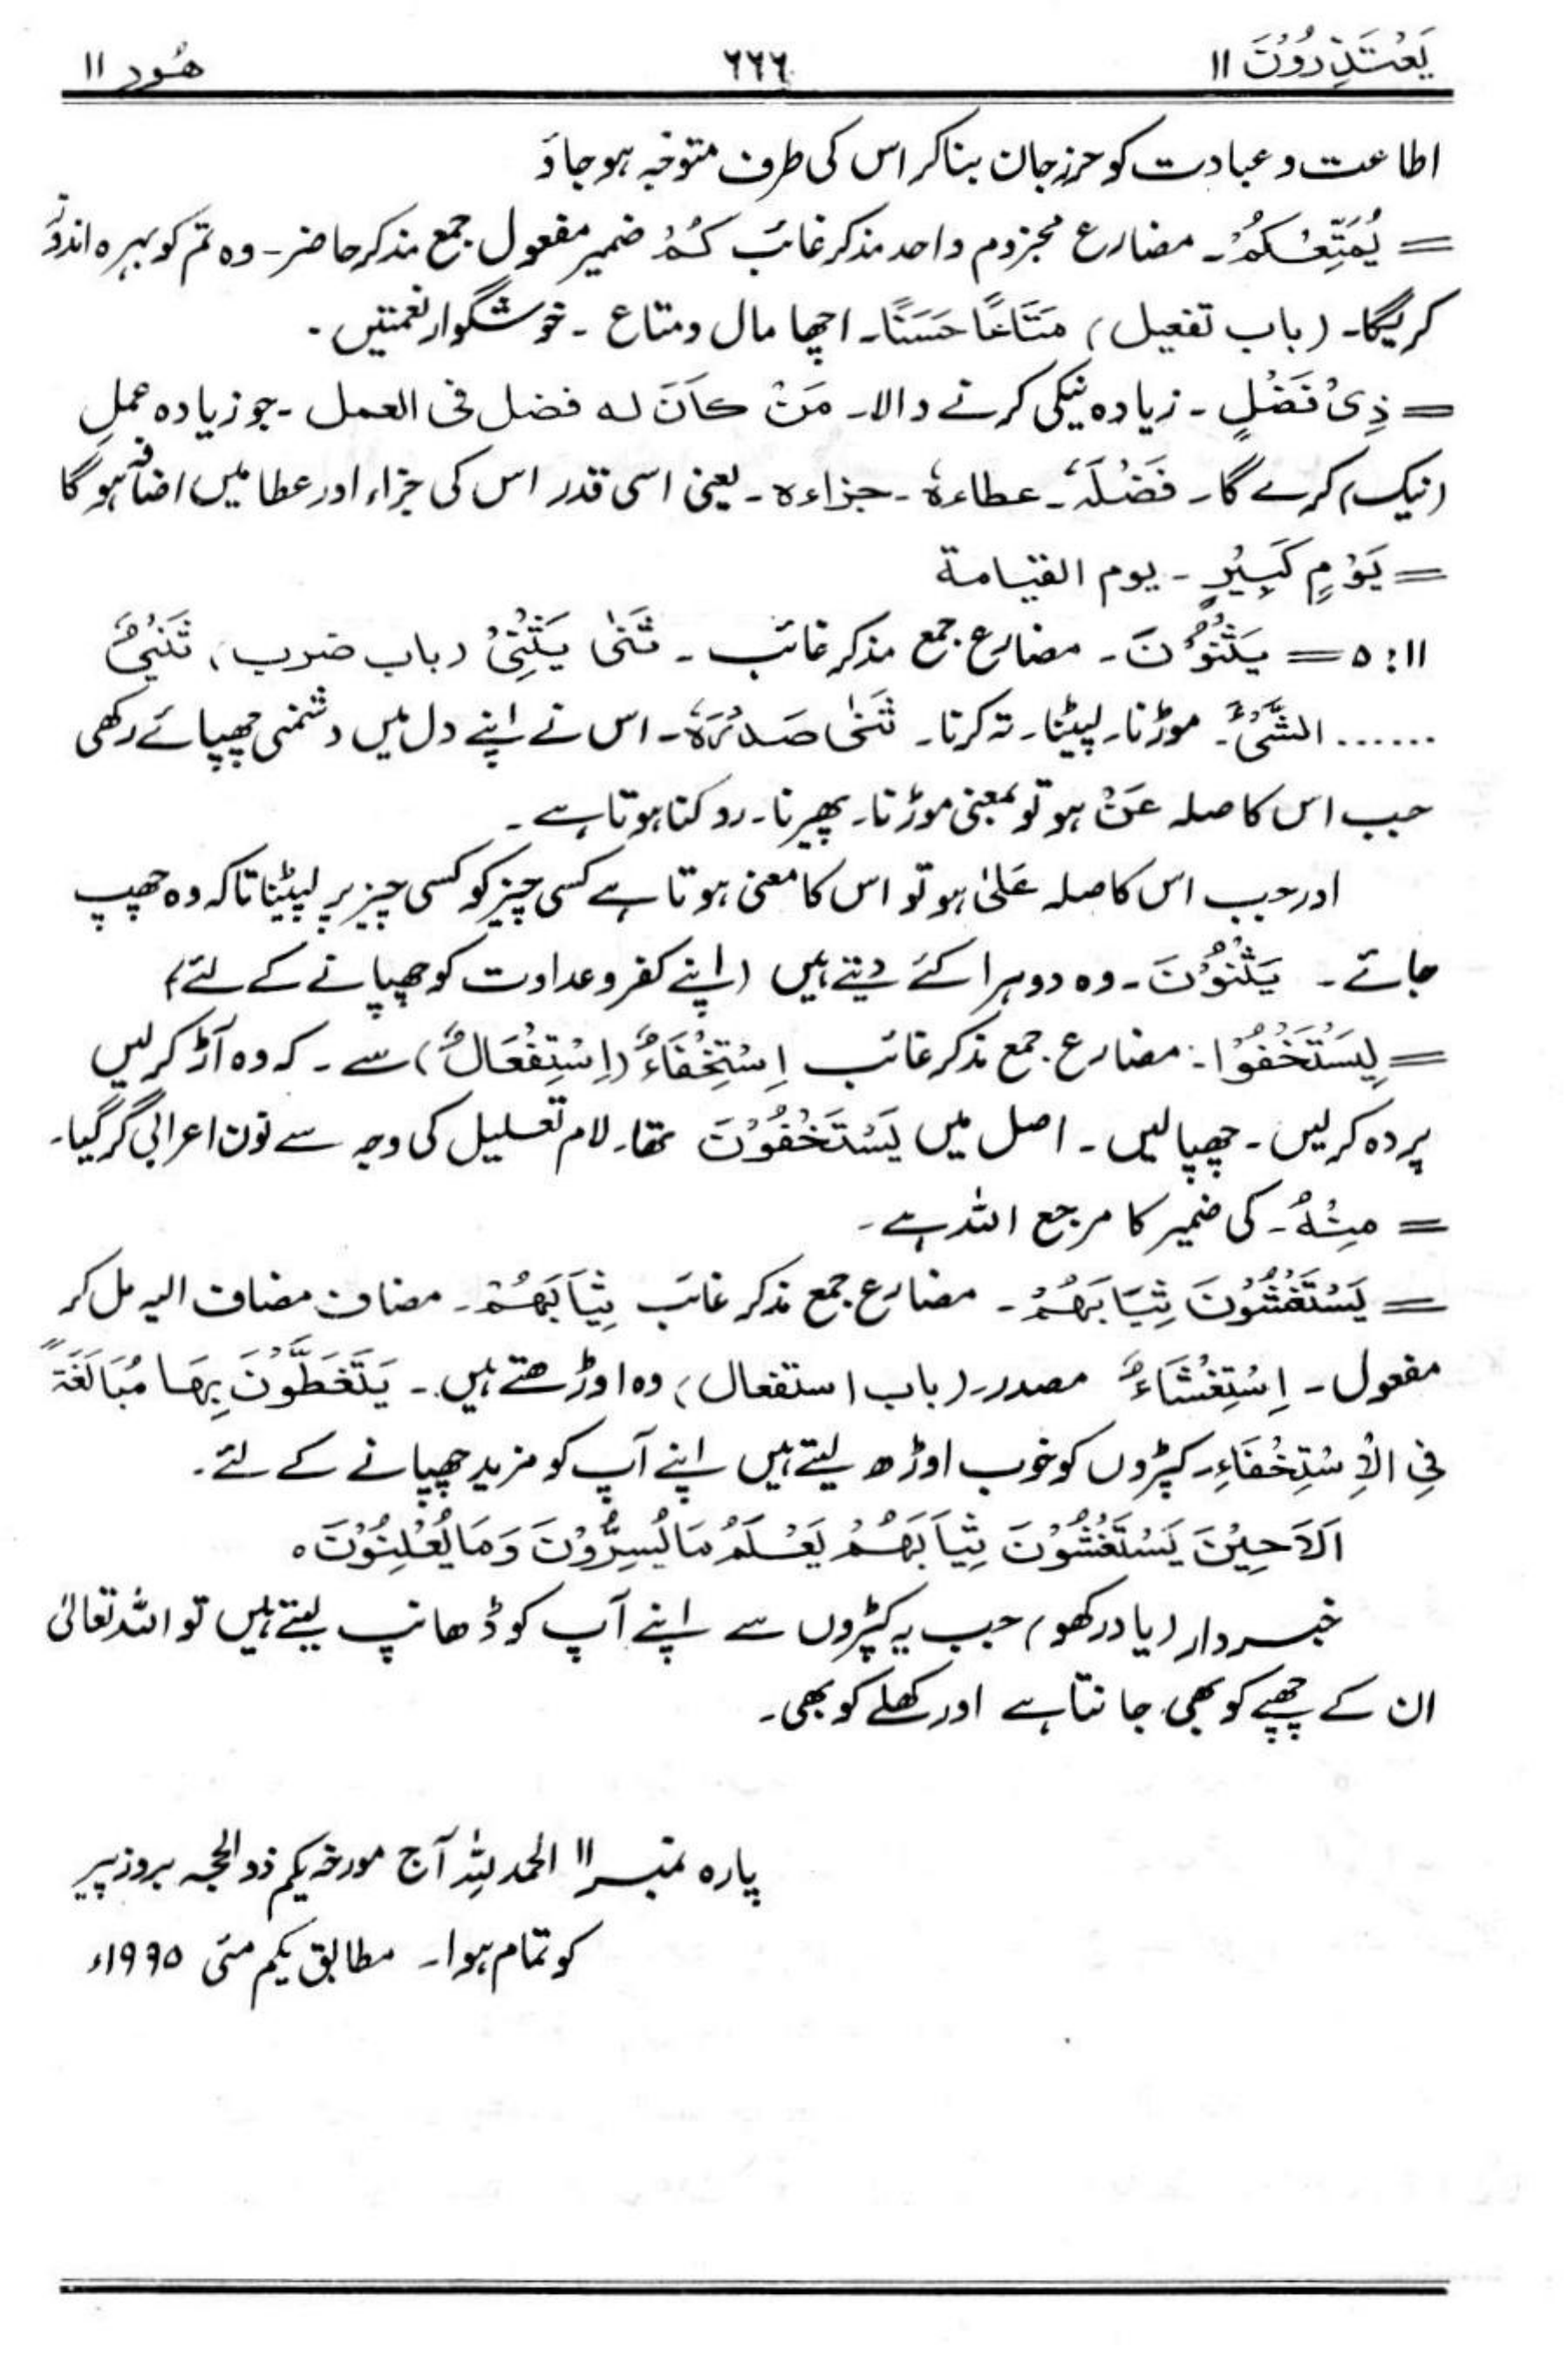 یَعْتَذِرُوْنَ ۱۱ ۶۶۶ ھُود ۱۱
اطاعت و عبادت کو حرزِ جان بنا کر اس کی طرف متوجہ ہو جاؤ
= یُمَتِّعْکُمْ۔ مضارع مجزوم واحد مذکر غائب کُمْ ضمیر مفعول جمع مذکر حاضر۔ وہ تم کو بہرہ اندوز
کریگا۔ (باب تفعیل) مَتَاعًا حَسَنًا۔ اچھا مال و متاع ۔ خوشگوار نعمتیں ۔
= ذِیْ فَضْلٍ ۔ زیادہ نیکی کرنے والا۔ مَنْ کَانَ لہ فضل فی العمل ۔ جو زیادہ عمل
(نیک) کرے گا۔ فَضْلَہٗ۔ عطاءہٗ ۔ جزاءہ ۔ یعنی اسی قدر اس کی جزاء اور عطا میں اضافہ ہو گا
= یَوْمٍ کَبِیْرٍ ۔ یوم القیامة
۱۱: ۵ = یَثْنُوْنَ ۔ مضارع جمع مذکر غائب ۔ ثَنٰی یَثْنِیْ (باب ضرب) ثَنْیٌ
...... الشَّیْءَ۔ موڑنا۔ لپیٹنا۔ تہ کرنا۔ ثَنٰی صَدْرَہٗ۔ اس نے اپنے دل میں دشمنی چھپائے رکھی
جب اس کا صلہ عَنْ ہو تو بمعنی موڑنا۔ پھیرنا۔ روکنا ہوتا ہے ۔
اور جب اس کا صلہ عَلٰی ہو تو اس کا معنی ہوتا ہے کسی چیز کو کسی چیز پر لپیٹنا تاکہ وہ چھپ
جائے ۔ یَثْنُوْنَ ۔ وہ دوہرا کئے دیتے ہیں (اپنے کفر و عداوت کو چھپانے کے لئے)
= لِیَسْتَخْفُوْا ۔ مضارع جمع مذکر غائب اِسْتِخْفَاءٌ (اِسْتِفْعَالٌ) سے ۔ کہ وہ آڑ کر لیں
پردہ کر لیں ۔ چھپا لیں ۔ اصل میں یَسْتَخْفُوْنَ تھا۔ لام تعلیل کی وجہ سے نون اعرابی گر گیا۔
= مِنْہُ ۔ کی ضمیر کا مرجع اللہ ہے ۔
= یَسْتَغْشُوْنَ ثِیَابَھُمْ ۔ مضارع جمع مذکر غائب ثِیَابَھُمْ ۔ مضاف مضاف الیہ مل کر
مفعول ۔ اِسْتِغْشَاءٌ مصدر۔ (باب استفعال) وہ اوڑھتے ہیں ۔ یَتَغَطَّوْنَ بِھَا مُبَالَغَۃً
فِی الْاِسْتِخْفَاءِ۔ کپڑوں کو خوب اوڑھ لیتے ہیں اپنے آپ کو مزید چھپانے کے لئے ۔
اَلَا حِیْنَ یَسْتَغْشُوْنَ ثِیَابَھُمْ یَعْلَمُ مَا یُسِرُّوْنَ وَمَا یُعْلِنُوْنَ ہ
خبردار (یاد رکھو) جب یہ کپڑوں سے اپنے آپ کو ڈھانپ لیتے ہیں تو اللہ تعالیٰ
ان کے چھپے کو بھی جانتا ہے اور کھلے کو بھی ۔
پارہ نمبر ۱۱ الحمد للہ آج مورخہ یکم ذو الحجہ بروز پیر
کو تمام ہوا۔ مطابق یکم مئی ۱۹۹۵ء